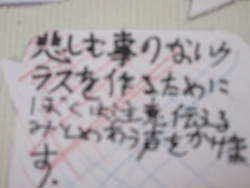 悲しむ事のないク
ラスを作るために
ぼくは注意伝える
みとめあう声をかけま
す.